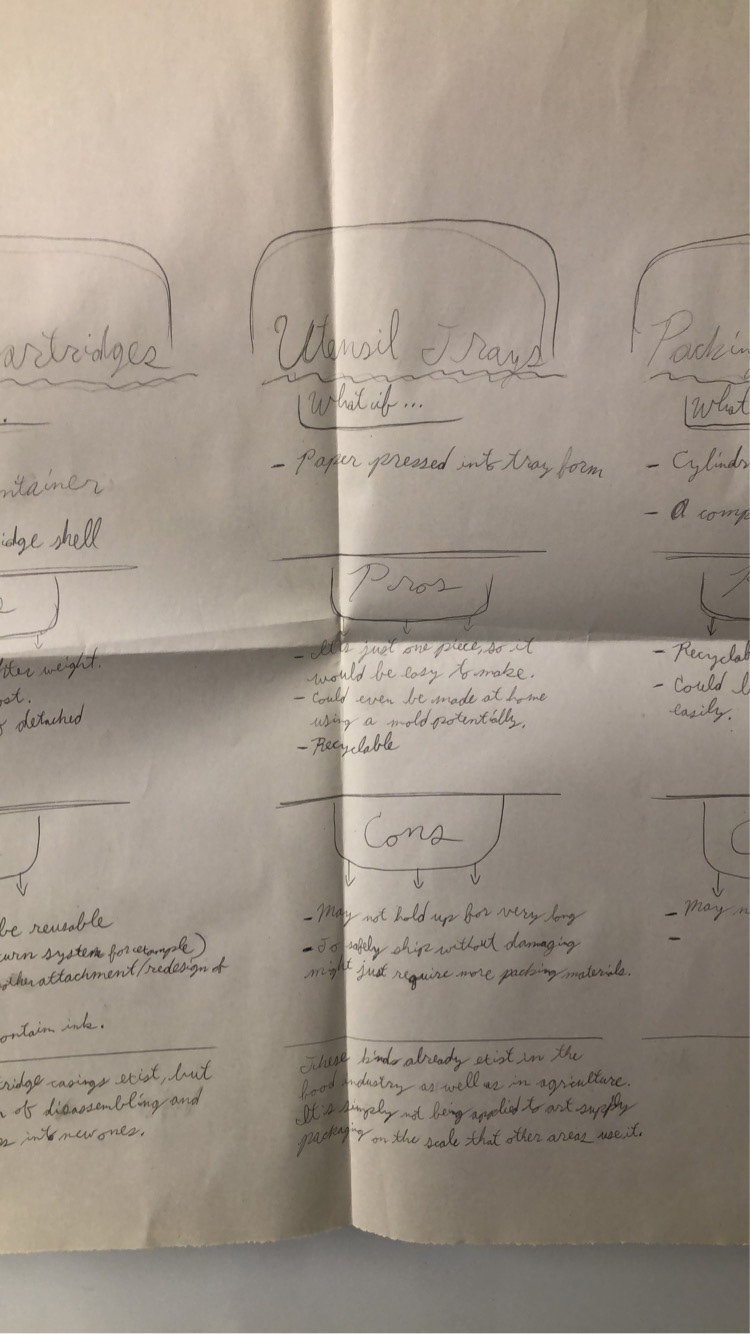 artridges
.
ntainer
idge shell
ost.
detached
be reusable
urn system for example)
other attachment/redesign of
ontain ink.
ridge casings exist, but
of disassembling and
into new ones.
Utensil Trays
What if ...
- Paper pressed into tray form
Pros
- It's just one piece, so it
would be easy to make.
- Could even be made at home
using a mold potentially.
- Recyclable
Cons
- May not hold up for very long
- To safely ship without damaging
might just require more packing materials.
These kinds already exist in the
food industry as well as in agriculture.
It's simply not being applied to art supply
packaging on the scale that other areas use it.
Packin
What
- Cylindr
- A comp
P
- Recyclab
- Could b
easily.
C
- May n
-